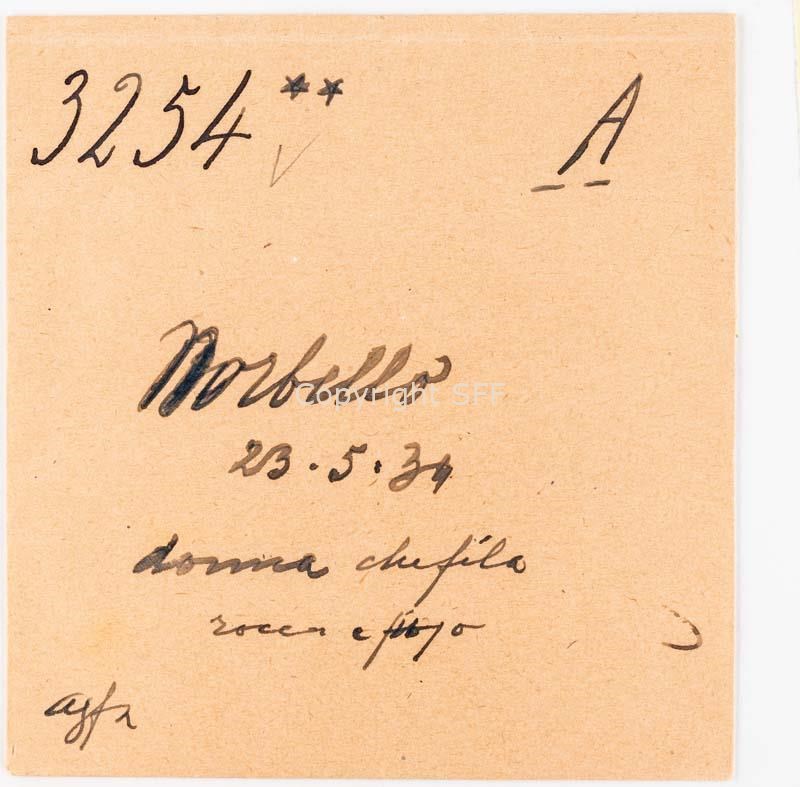 3254 ** A
Norbello
23.5.34
donna che fila
rocca e fuso
agfa
Copyright SFF